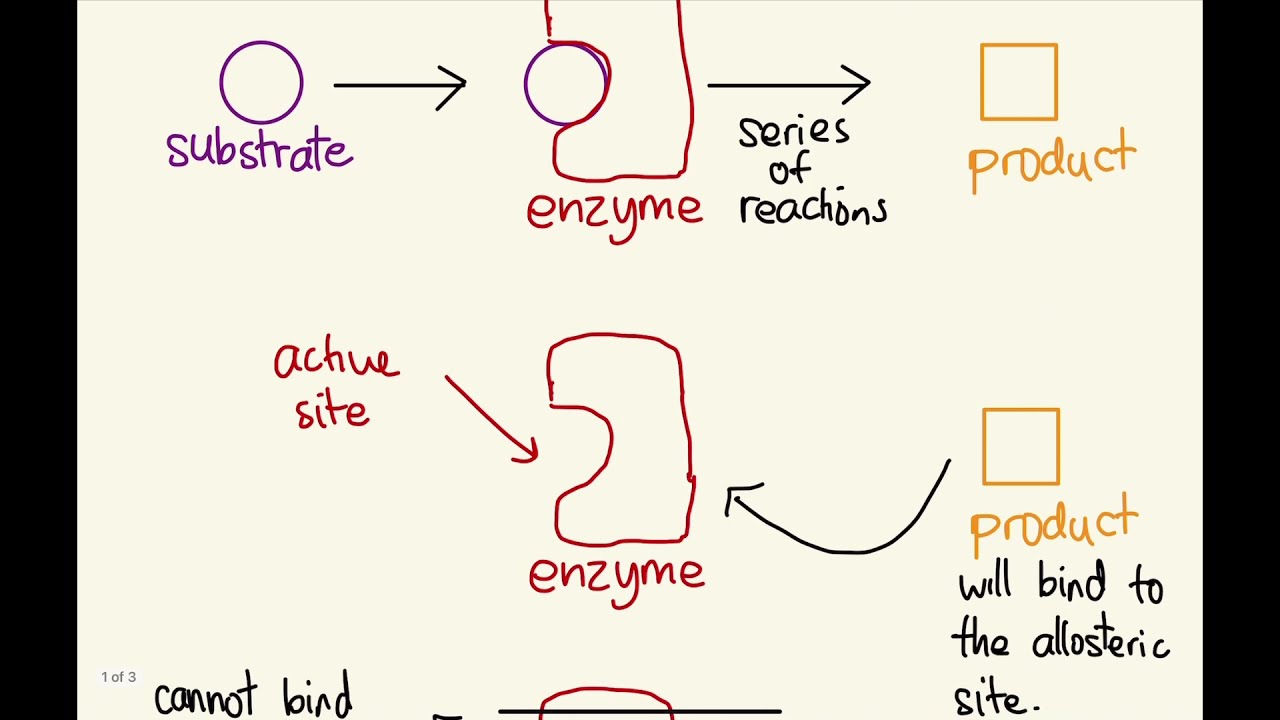 substrate
enzyme
series
of
reactions
product
active
site
enzyme
product
will bind to
the allosteric
site.
1 of 3
cannot bind